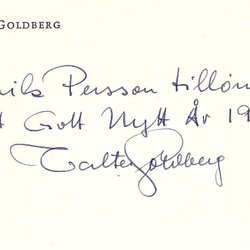 GOLDBERG
Nils Persson tillön
Gott Nytt År 19
Walter Goldberg